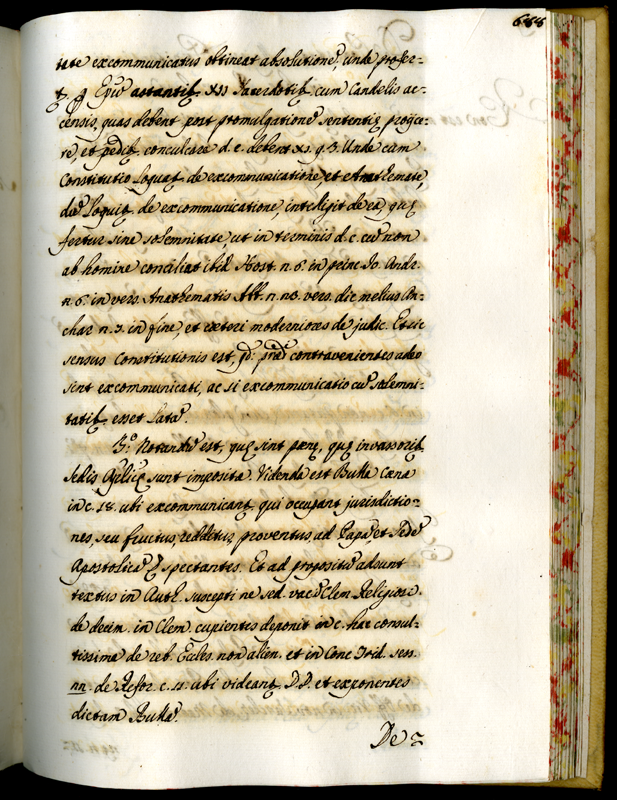 688
tate excommunicatus obtineat absolutione, unde profer-
t. p Epũ astantib. XII Sacerdotib. cum Candelis ac-
censis, quas debent post promulgatione sententiȩ projice-
re, et pedib. conculcare d. c. debent XI. q. 3. Unde cum
Constitutio Loquat. de excommunicatione, et Anathemate,
du Loquit. de excommunicatione, intelligit de ea, quȩ
fertur sine solemnitate, ut in terminis d. c. cu non
ab homine conciliat ibid. Host. n. 6. in princ. Jo. Andr.
n. 6. in vers. Anathematis Abb. n. 13. vers. dic melius An-
char. n. 3. in fine, et cȩteri moderniores de judic. Et sic
sensus Constitutionis est, qd. prȩdi contravenientes adeo
sint excommunicati, ac si excommunicatio cu solemni-
tatib. esset Lata.
3.º Notandu est, quȩ sint pȩnȩ, quȩ invasorib.
Sedis Aplicȩ sunt imposita. Videnda est Bulla Cȩna
in c. 18. ubi excommunicant. qui occupant jurisdictio-
nes, seu fructus, redditus, proventus ad Papa, et Sede
Apostolica spectantes. Et ad propositu adsunt
textus in Auth. suscepti ne sed. vac. Clem. Religiosi.
de decim. in Clem. cupientes deponit in c. hac consul-
tissima de reb. Eccles. non alien. et in Conc. Trid. sess.
nn. de Refor. c. 11. ubi videant. D.D. et exponentes
dictam Bulla.
De